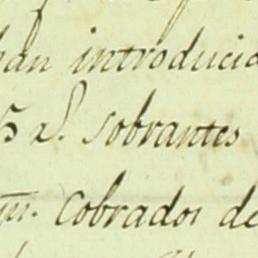 han introducid
5 d. sobrantes
m. Cobrados de